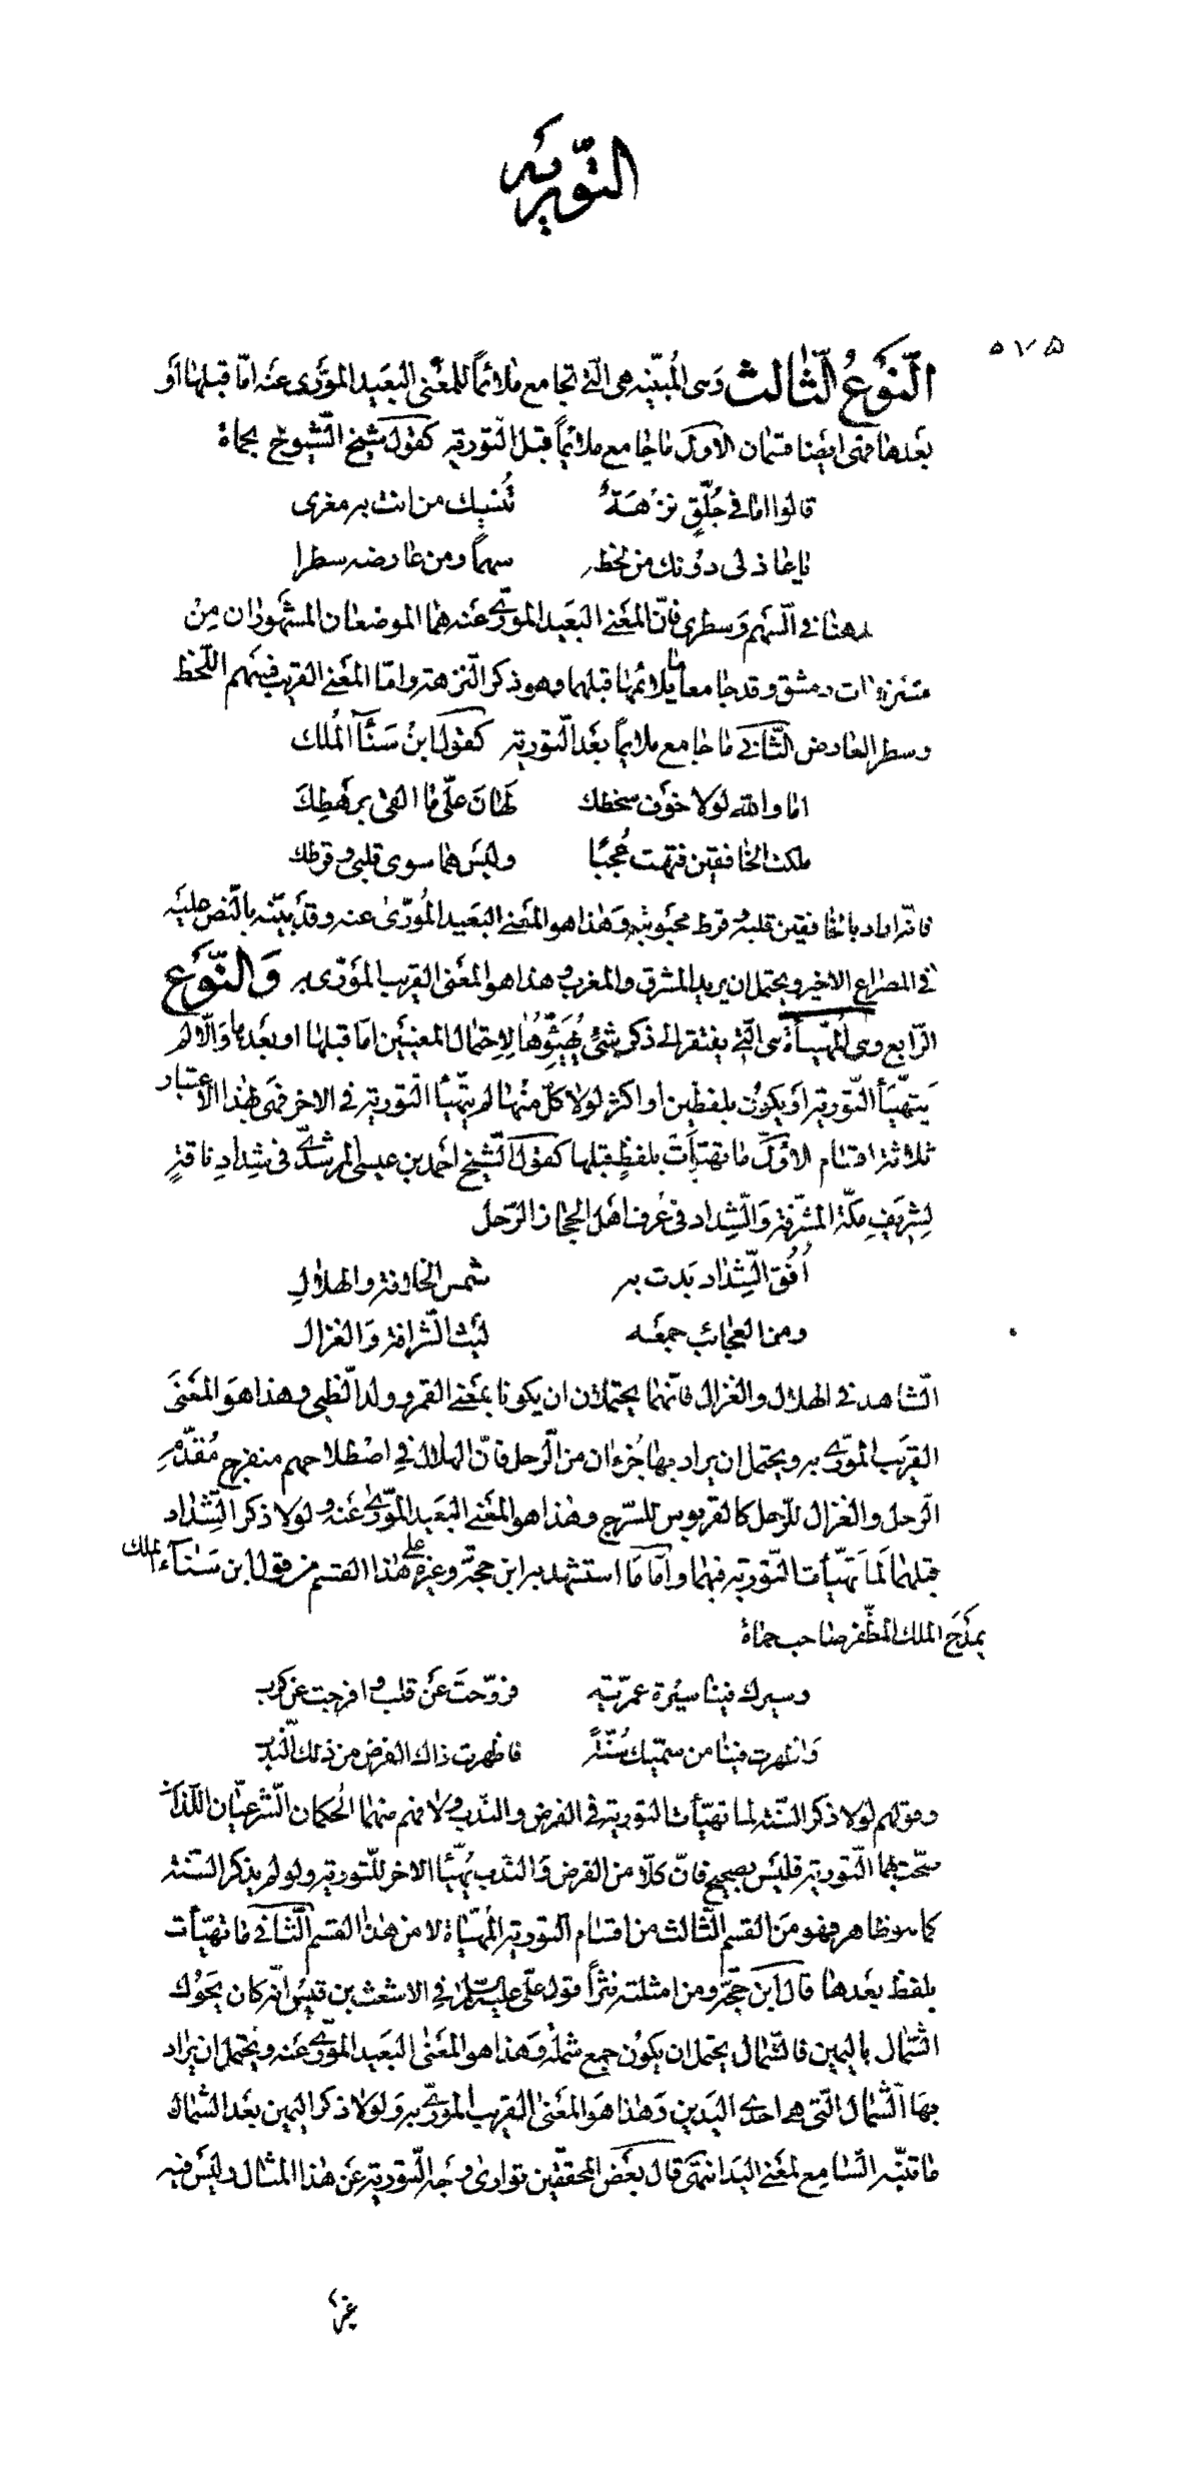 التّورية
٥٧٥
النَّوعُ الثّالث وَهى المُبيّنه هى الّتى تجامع ملائمًا للمعْنى البَعَيد المورَّى عنَه امّا قبلها اَو
بَعَدها فهى ايَضا قسمان الاوّل ما جامع ملائِماً قبل التّورية كقَول شيخ الشّيوخ بحماة
قالوا اما فى جُلّقٍ نزْهَةٌ تُنسِيك من انت به مغرى
يا عاذلى دوُنك من لحظه سهماً ومن عارضه سطرا
هنا فى السّهم وَسطرى فانّ المغَنى البَعَيد المورّى عَنه هما الموضعان المشهوران مِنْ
متنزهات دمشق وقد جامعا ملائمًا قبلهما وهو ذكر النّزهة وامّا المعَنى القريب فسَهم اللّحظ
وسطر العارض الثّانى ما جامع ملايماً بعَد التّورية كقَول ابنْ سَنَآ المُلك
اما والله لولا خوَف سخطك لهَانَ علَّى ما القى برهَطِكَ
ملكت الخافقين فتهت عُجبًا وليسَ هما سوى قلبى وقرطك
فانّه اراد بالخافقين قلبهُ وقرط محَبوبته وَهٰذا هو المعَنى البَعَيد المُورّىٰ عنه وقدَ بيّنه بالنّص عليَه
فى المصَراع الاخير ويحَتمل ان يريد المشرق والمغرب وهذا هو المعَنى القريب المؤرّى به وَالنّوَع
الرّابع وهى المُهيّأة هى الّتى يفتقر الى ذكر شئٍ يُهَيِّئُهٰا لِاحتمٰال المعنيَيَن امّا قبلها او بعَدها وَالّا لم
يَتهّيأ التّورية اَو يكوُن بلفظَين او اكثر لولا كلّ منهٰا لم يتهّيأ التّورية فى الاخر فهَى بهٰذا الاعتبار
ثلاثة اقسام الاوّل ما تهيّأَت بلفظٍ قبلها كقَول الشّيخ احمَد بن عيسى المرشدّى فى شِدادِ ناقةٍ
لِشَريفِ مكّة المشرّفة وَالشِّداد فى عُرف اهَل الحجاز الرّحل
اُفُق الشِّدٰاد بَدت به شمس الخلافة والهلٰالِ
ومن العجٰائب جمعَه ليَث الشّرافة وَالغزال
الشّاهد فى الهلال والغزال فانّهما يحتملان ان يكونا بمعَنى القمر وولد الظّبى وهذا هَو المعَنىَ
القَريَب المورّى به ويحتمل ان يراد بهما جُزءان من الرّحل فانّ الهلال فى اصْطلاحهم منفرج مُقدّم
الرّحل والغزال للرّحل كالقربوس للسّرج وهٰذا هو المعَنى البَعَيد المورّى عَنه ولولا ذكر الشِّدٰاد
قبلهما لَما تهَيّأت التّورية فيهما وامّا مَا استشهد به ابن حجّة وغيره على هٰذا القسم من قول ابن سَنٰآء الملك
يمَدَح الملك المظّفر صٰاحب حماة
وسيرك فينا سيْرة عمرّية فروّحتَ عَن قلب وافرجت عَن كرب
وَاظهرت فينٰا من سميّك سُنّةً فاظهرت ذاك الفرض من ذلك النّدب
وقولهم لولا ذكر السّنة لما تهيّأت التورية فى الفرض والندب ولا فهم منهما الحُكمان الشّرعيّان اللّذان
صحّت بهما التّورية فليَس بصحيح فانّ كلّا من الفرض وَالندب يُهّيأ الاخر للتّورية ولو لم يذكر السّنة
كما هو ظاهر فهو مَن القسم الثّالث من اقسٰام التّورية المهيّاة لا من هٰذا القسم الثّانى ما تهَيّأت
بلفظ بعَدها قال ابن حجّة ومن امثلته نثراً قول علّى عليه السّلم فى الاشعث بن قيس انّه كان يحَوُك
الشّمال باليمين فالشّمال يحتمل ان يكوُن جمع شملة وَهذا هو المعَنٰى البَعَيد المورّى عَنه ويحَتمل ان يراد
بهَا الشّمال الّتى هى احدى اليَدين وَهٰذا هَو المعَنىٰ القريب المورّى به وَلولا ذكر اليمين بعَد الشمال
ما تنبّه السّامع لمعَنى اليَد انتهَى قال بعَض المحققّين توارىٰ وجَه التّورية عَن هٰذا المثال وليَس فيه
غير